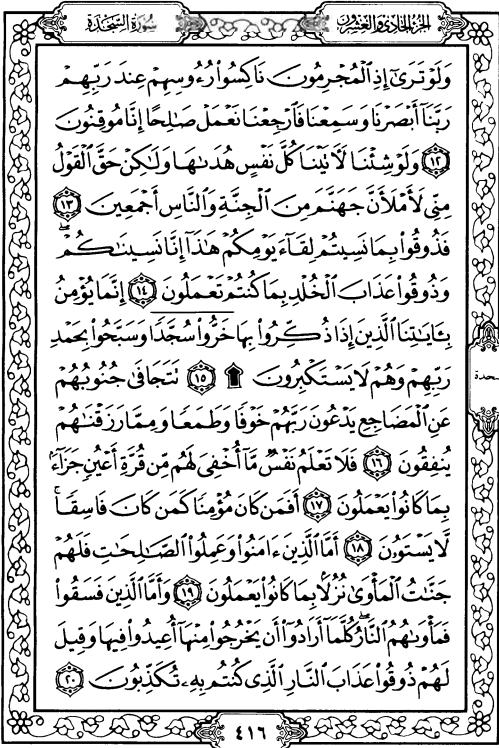 الجزء الحادي والعشرون
سورة السجدة
وَلَوْ تَرَىٰٓ إِذِ ٱلْمُجْرِمُونَ نَاكِسُوا۟ رُءُوسِهِمْ عِندَ رَبِّهِمْ
رَبَّنَآ أَبْصَرْنَا وَسَمِعْنَا فَٱرْجِعْنَا نَعْمَلْ صَـٰلِحًا إِنَّا مُوقِنُونَ
١٢ وَلَوْ شِئْنَا لَـَٔاتَيْنَا كُلَّ نَفْسٍ هُدَىٰهَا وَلَـٰكِنْ حَقَّ ٱلْقَوْلُ
مِنِّى لَأَمْلَأَنَّ جَهَنَّمَ مِنَ ٱلْجِنَّةِ وَٱلنَّاسِ أَجْمَعِينَ ١٣
فَذُوقُوا۟ بِمَا نَسِيتُمْ لِقَآءَ يَوْمِكُمْ هَـٰذَآ إِنَّا نَسِينَـٰكُمْ ۖ
وَذُوقُوا۟ عَذَابَ ٱلْخُلْدِ بِمَا كُنتُمْ تَعْمَلُونَ ١٤ إِنَّمَا يُؤْمِنُ
بِـَٔايَـٰتِنَا ٱلَّذِينَ إِذَا ذُكِّرُوا۟ بِهَا خَرُّوا۟ سُجَّدًا وَسَبَّحُوا۟ بِحَمْدِ
رَبِّهِمْ وَهُمْ لَا يَسْتَكْبِرُونَ ١٥ تَتَجَافَىٰ جُنُوبُهُمْ
عَنِ ٱلْمَضَاجِعِ يَدْعُونَ رَبَّهُمْ خَوْفًا وَطَمَعًا وَمِمَّا رَزَقْنَـٰهُمْ
يُنفِقُونَ ١٦ فَلَا تَعْلَمُ نَفْسٌ مَّآ أُخْفِىَ لَهُم مِّن قُرَّةِ أَعْيُنٍ جَزَآءًۢ
بِمَا كَانُوا۟ يَعْمَلُونَ ١٧ أَفَمَن كَانَ مُؤْمِنًا كَمَن كَانَ فَاسِقًا ۚ
لَّا يَسْتَوُۥنَ ١٨ أَمَّا ٱلَّذِينَ ءَامَنُوا۟ وَعَمِلُوا۟ ٱلصَّـٰلِحَـٰتِ فَلَهُمْ
جَنَّـٰتُ ٱلْمَأْوَىٰ نُزُلًۢا بِمَا كَانُوا۟ يَعْمَلُونَ ١٩ وَأَمَّا ٱلَّذِينَ فَسَقُوا۟
فَمَأْوَىٰهُمُ ٱلنَّارُ ۖ كُلَّمَآ أَرَادُوٓا۟ أَن يَخْرُجُوا۟ مِنْهَآ أُعِيدُوا۟ فِيهَا وَقِيلَ
لَهُمْ ذُوقُوا۟ عَذَابَ ٱلنَّارِ ٱلَّذِى كُنتُم بِهِۦ تُكَذِّبُونَ ٢٠
٤١٦